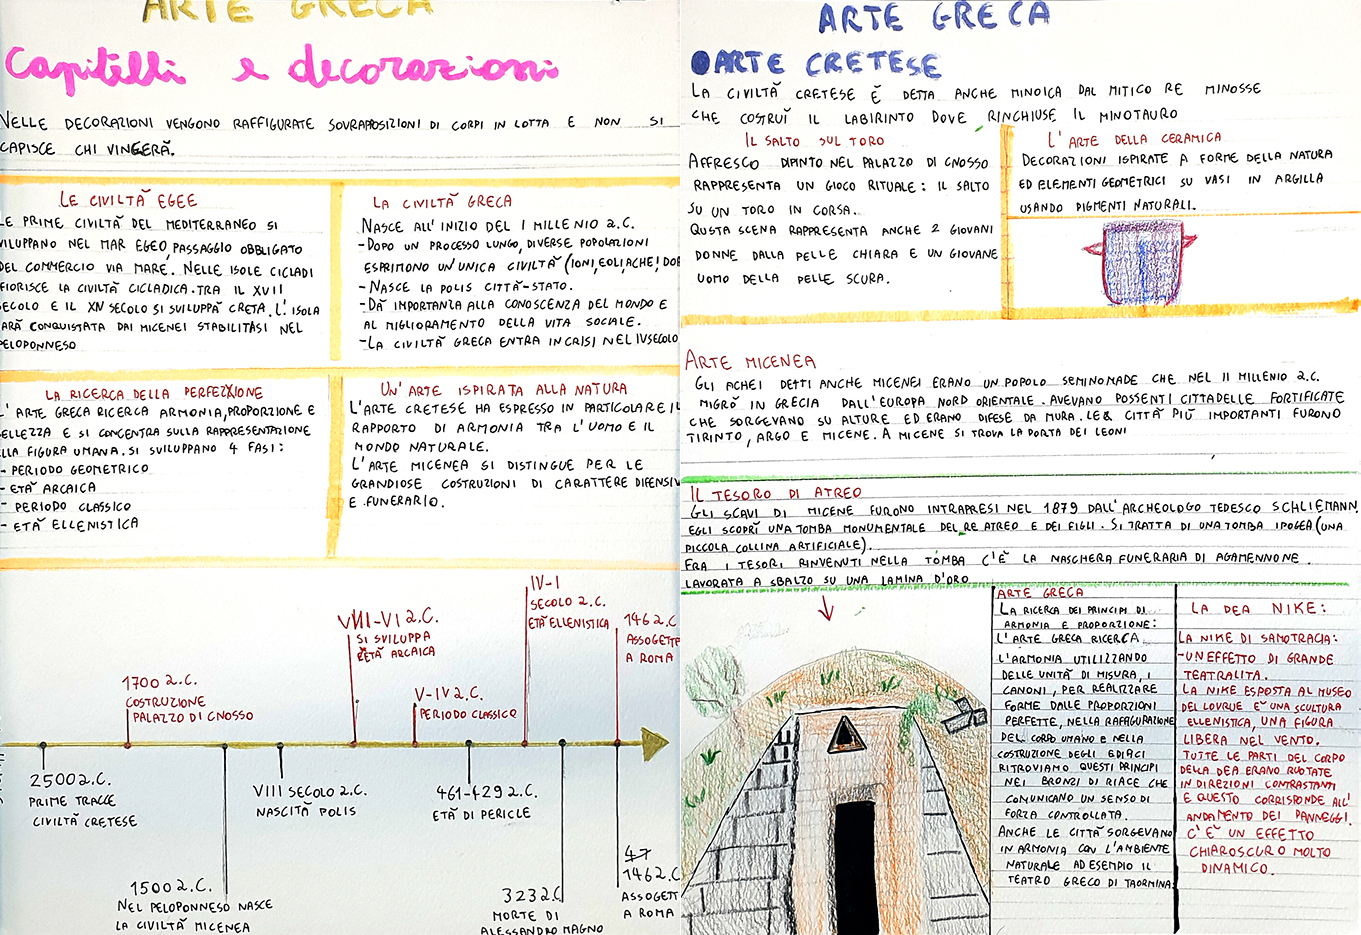 ARTE GRECA
Capitelli e decorazioni
NELLE DECORAZIONI VENGONO RAFFIGURATE SOVRAPPOSIZIONI DI CORPI IN LOTTA E NON SI
CAPISCE CHI VINCERÀ.
LE CIVILTÀ EGEE
LE PRIME CIVILTÀ DEL MEDITERRANEO SI
VILUPPANO NEL MAR EGEO, PASSAGGIO OBBLIGATO
DEL COMMERCIO VIA MARE. NELLE ISOLE CICLADI
FIORISCE LA CIVILTÀ CICLADICA. TRA IL XVII
SECOLO E IL XIV SECOLO SI SVILUPPÀ CRETA. L'ISOLA
SARÀ CONQUISTATA DAI MICENEI STABILITASI NEL
PELOPONNESO
LA CIVILTÀ GRECA
NASCE ALL'INIZIO DEL I MILLENIO a.C.
- DOPO UN PROCESSO LUNGO, DIVERSE POPOLAZIONI
ESPRIMONO UN'UNICA CIVILTÀ (IONI, EOLI, ACHEI DOR
- NASCE LA POLIS CITTÀ-STATO.
- DÀ IMPORTANZA ALLA CONOSCENZA DEL MONDO E
AL MIGLIORAMENTO DELLA VITA SOCIALE.
- LA CIVILTÀ GRECA ENTRA IN CRISI NEL IV SECOLO
LA RICERCA DELLA PERFEZIONE
L'ARTE GRECA RICERCA ARMONIA, PROPORZIONE E
BELLEZZA E SI CONCENTRA SULLA RAPPRESENTAZIONE
DELLA FIGURA UMANA. SI SVILUPPANO 4 FASI:
- PERIODO GEOMETRICO
- ETÀ ARCAICA
- PERIODO CLASSICO
- ETÀ ELLENISTICA
UN'ARTE ISPIRATA ALLA NATURA
L'ARTE CRETESE HA ESPRESSO IN PARTICOLARE IL
RAPPORTO DI ARMONIA TRA L'UOMO E IL
MONDO NATURALE.
L'ARTE MICENEA SI DISTINGUE PER LE
GRANDIOSE COSTRUZIONI DI CARATTERE DIFENSIV
E FUNERARIO.
IV-I
SECOLO a.C.
ETÀ ELLENISTICA
VIII-VI a.C.
SI SVILUPPA
L'ETÀ ARCAICA
146 a.C
ASSOGETTA
A ROMA
1700 a.C.
COSTRUZIONE
PALAZZO DI CNOSSO
V-IV a.C.
PERIODO CLASSICO
2500 a.C.
PRIME TRACCE
CIVILTÀ CRETESE
VIII SECOLO a.C.
NASCITÀ POLIS
461-429 a.C.
ETÀ DI PERICLE
1500 a.C.
NEL PELOPONNESO NASCE
LA CIVILTÀ MICENEA
323 a.C
MORTE DI
ALESSANDRO MAGNO
47
146 a.C.
ASSOGETT
A ROMA
ARTE GRECA
ARTE CRETESE
LA CIVILTÀ CRETESE È DETTA ANCHE MINOICA DAL MITICO RE MINOSSE
CHE COSTRUÌ IL LABIRINTO DOVE RINCHIUSE IL MINOTAURO
IL SALTO SUL TORO
AFFRESCO DIPINTO NEL PALAZZO DI CNOSSO
RAPPRESENTA UN GIOCO RITUALE: IL SALTO
SU UN TORO IN CORSA.
QUSTA SCENA RAPPRESENTA ANCHE 2 GIOVANI
DONNE DALLA PELLE CHIARA E UN GIOVANE
UOMO DELLA PELLE SCURA.
L'ARTE DELLA CERAMICA
DECORAZIONI ISPIRATE A FORME DELLA NATURA
ED ELEMENTI GEOMETRICI SU VASI IN ARGILLA
USANDO PIGMENTI NATURALI.
ARTE MICENEA
GLI ACHEI DETTI ANCHE MICENEI ERANO UN POPOLO SEMINOMADE CHE NEL II MILLENIO a.C.
MIGRÒ IN GRECIA DALL'EUROPA NORD ORIENTALE. AVEVANO POSSENTI CITTADELLE FORTIFICATE
CHE SORGEVANO SU ALTURE ED ERANO DIFESE DA MURA. LE CITTÀ PIÙ IMPORTANTI FURONO
TIRINTO, ARGO E MICENE. A MICENE SI TROVA LA PORTA DEI LEONI
IL TESORO DI ATREO
GLI SCAVI DI MICENE FURONO INTRAPRESI NEL 1879 DALL'ARCHEOLOGO TEDESCO SCHLIEMANN
EGLI SCOPRÌ UNA TOMBA MONUMENTALE DEL RE ATREO E DEI FIGLI. SI TRATTA DI UNA TOMBA IPOGEA (UNA
PICCOLA COLLINA ARTIFICIALE).
FRA I TESORI RINVENUTI NELLA TOMBA C'È LA MASCHERA FUNERARIA DI AGAMENNONE.
LAVORATA A SBALZO SU UNA LAMINA D'ORO
ARTE GRECA
LA RICERCA DEI PRINCIPI DI
ARMONIA E PROPORZIONE:
L'ARTE GRECA RICERCA
L'ARMONIA UTILIZZANDO
DELLE UNITÀ DI MISURA, I
CANONI, PER REALIZZARE
FORME DALLE PROPORZIONI
PERFETTE, NELLA RAFFIGURAZIONE
DEL CORPO UMANO E NELLA
COSTRUZIONE DEGLI EDIFICI
RITROVIAMO QUESTI PRINCIPI
NEI BRONZI DI RIACE CHE
COMUNICANO UN SENSO DI
FORZA CONTROLLATA.
ANCHE LE CITTÀ SORGEVANO
IN ARMONIA CON L'AMBIENTE
NATURALE AD ESEMPIO IL
TEATRO GRECO DI TAORMINA.
LA DEA NIKE:
LA NIKE DI SAMOTRACIA:
- UN EFFETTO DI GRANDE
TEATRALITÀ.
LA NIKE ESPOSTA AL MUSEO
DEL LOVRUE È UNA SCULTURA
ELLENISTICA, UNA FIGURA
LIBERA NEL VENTO.
TUTTE LE PARTI DEL CORPO
DELLA DEA ERANO RUOTATE
IN DIREZIONI CONTRASTANTI
E QUESTO CORRISPONDE ALL'
ANDAMENTO DEI PANNEGGI.
C'È UN EFFETTO
CHIAROSCURO MOLTO
DINAMICO.